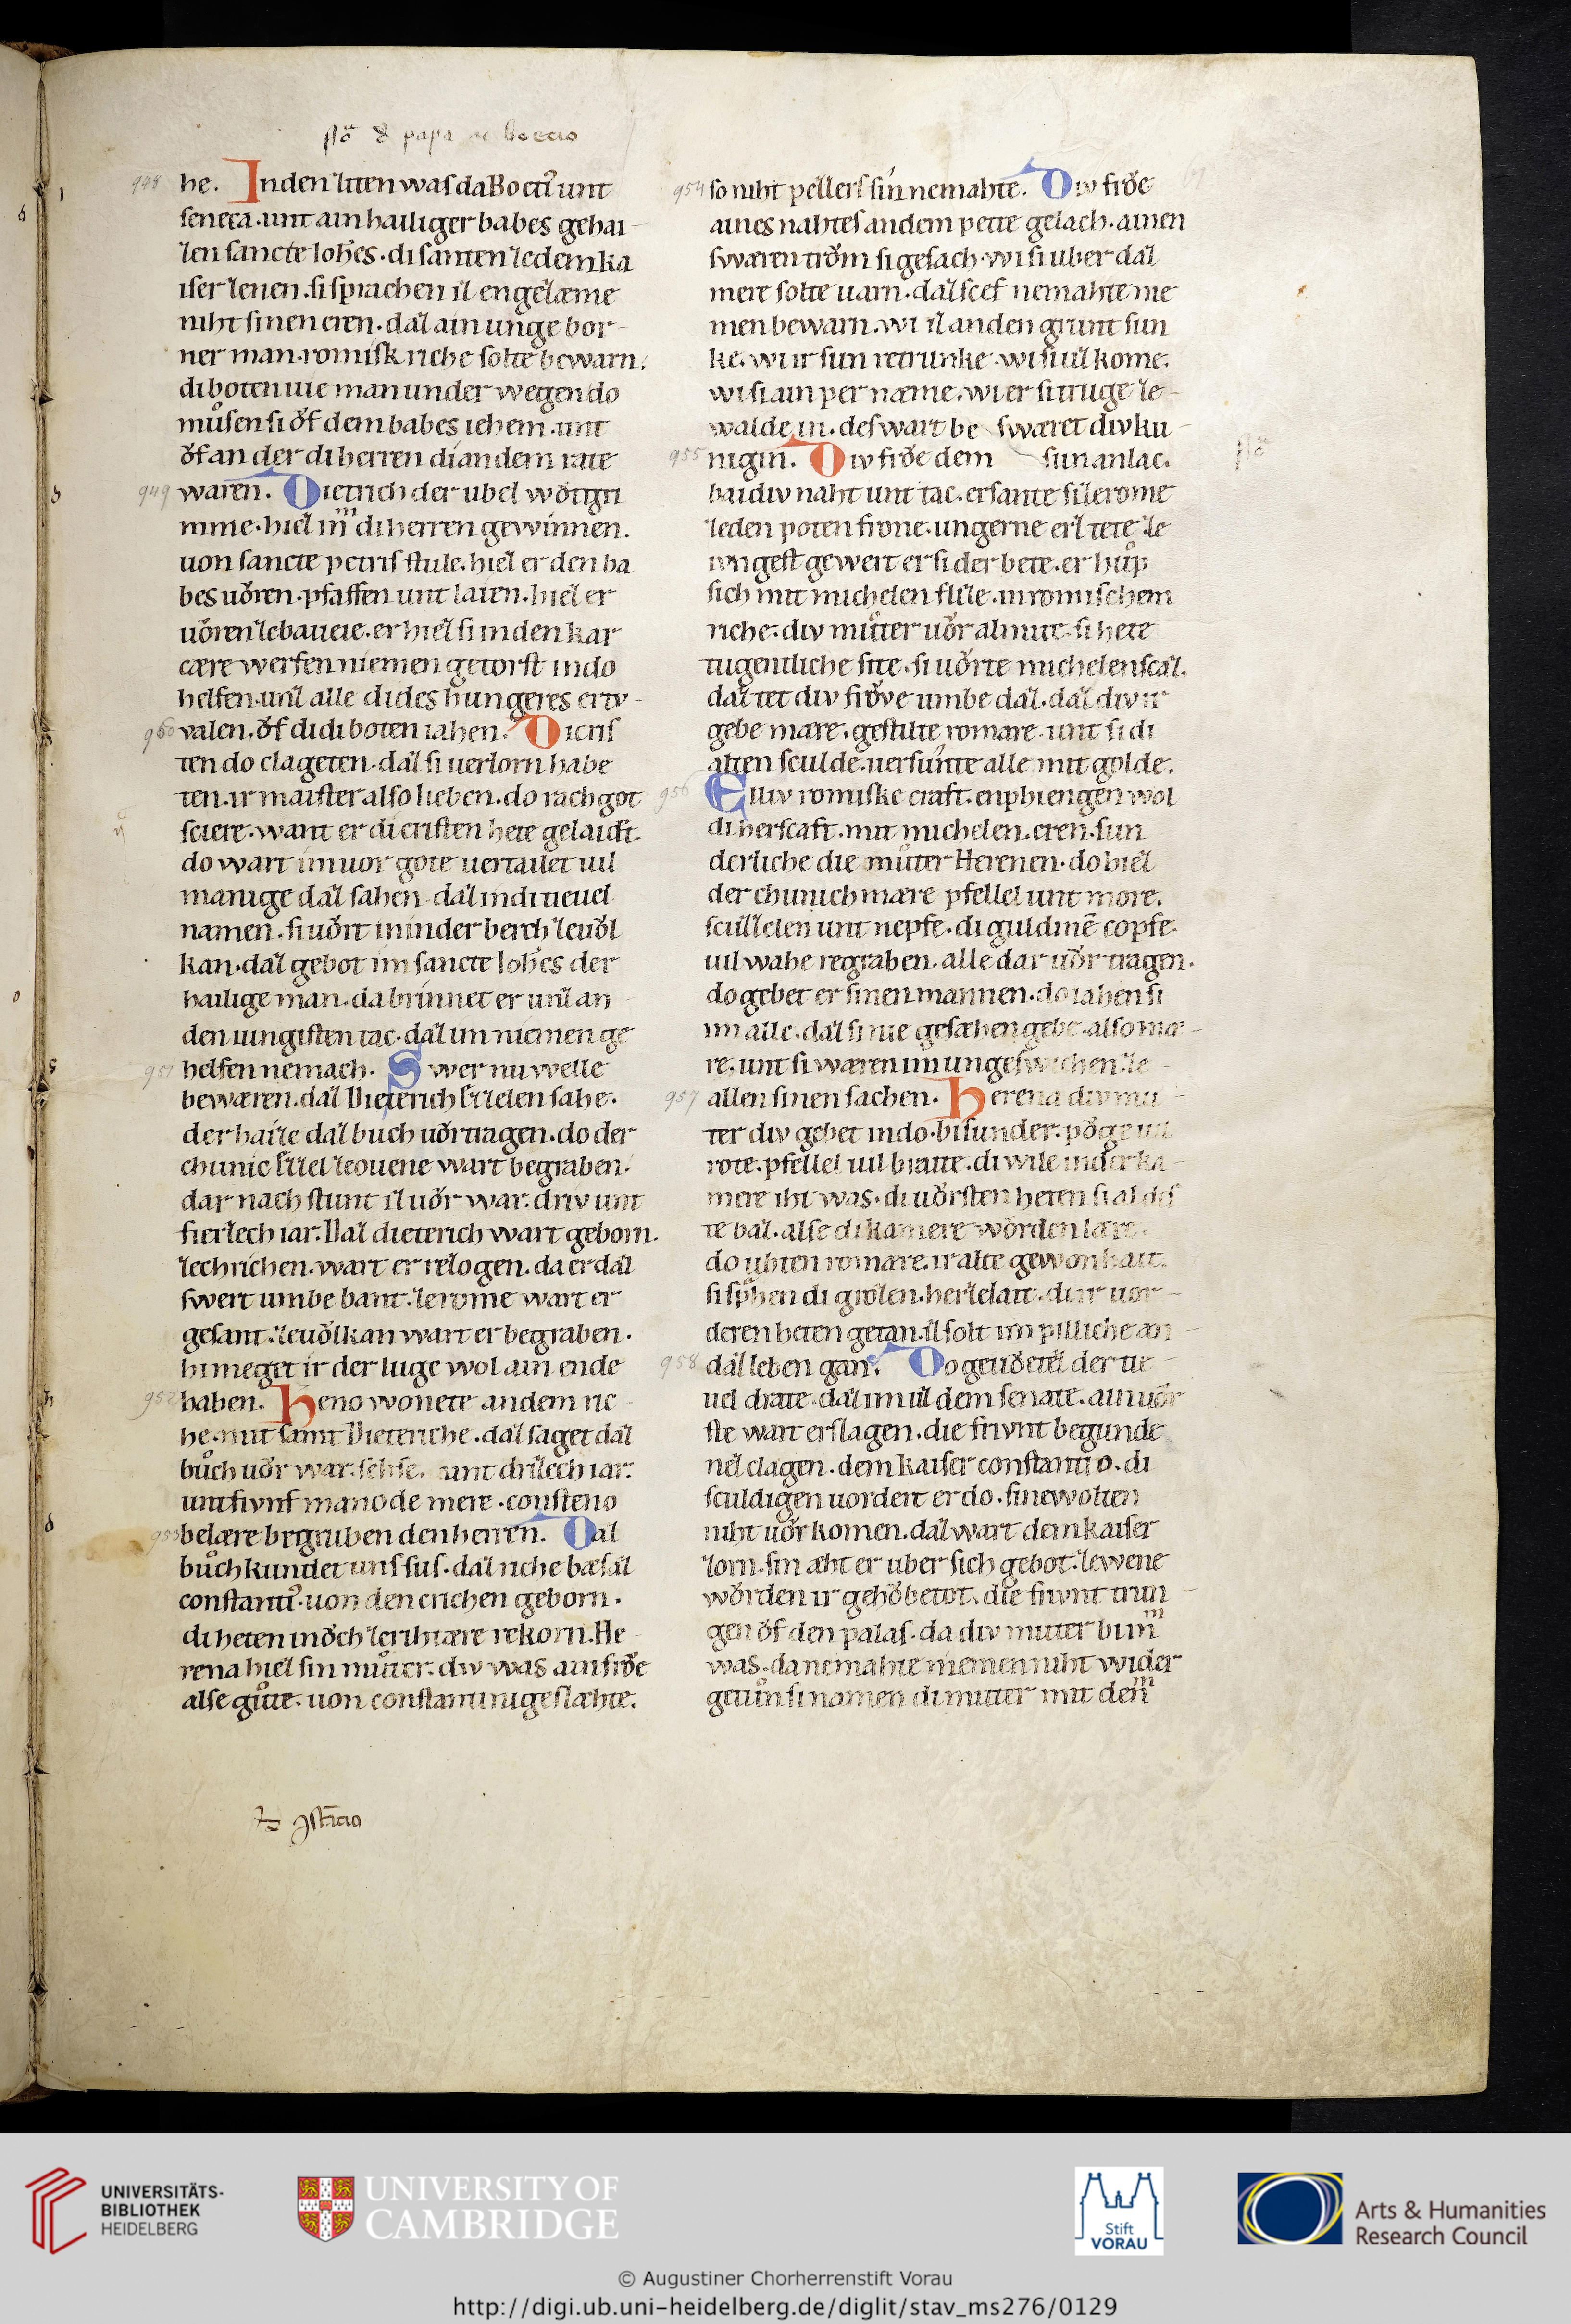 he. In den ziten was da Boeti᷒ unt
seneca. unt ain hailiger babes gehai-
zen sancte Iohēs. di santen ze dem ka
iser zenen. si sprachen iz engezæme
niht sinen eren. daz ain unge bor-
ner man. romisk riche solte bewarn.
di boten uie man under wegen do
mů́sen si ǒf dem babes iehem. unt
ǒf an der di herren di an dem rate
waren. Dietrich der ubel wǒtgri
mme. hiez im di herren gewinnen.
uon sancte petris stule. hiez er den ba
bes uǒren. pfaffen unt laien. hiez er
uǒren ze baueie. er hiez si in den kar
cære werfen niemen getorst in do
helfen. unz alle di des hungeres ertv-
valen. ǒf di di boten iahen. Di cris
ten do clageten. daz si uerlorn habe
ten. ir maister also lieben. do rach got
sciere. want er di cristen hete gelaidt.
do wart im uor gote uertailet uil
manige daz sahen. daz in di tieuel
namen. si uǒrt in in der berch ze uǒl
kan. daz gebot im sancte Iohēs der
hailige man. da brinnet er unz an
den iungisten tac. daz im niemen ge
helfen nemach. Swer nu welle
bewæren. daz Dieterich Ezzelen sahe.
der haize daz buch uǒrtragen. do der
chunic Ezzel zeouene wart begraben.
dar nach stunt iz uǒr war. driv unt
fierzech iar. Daz dieterich wart geborn.
ze chrichen. wart er rezogen. da er daz
swert umbe bant. ze rome wart er
gesant. ze uǒlkan wart er begraben.
hi meget ir der luge wol ain ende
haben. Heno wonete an dem ric
he. mit samt Dieteriche. daz saget daz
bůch uǒr war. sehse. unt drizech iar.
unt fivnf manode mere. consteno
belære begruben den herren. Daz
bůch kundet uns sus. daz riche bæsaz
constanti᷒. uon den crichen geborn.
di heten in ǒch ze rihtære rekorn. He
rena hiez sin mů́ter. div was ain frǒe
alse gůte. uon constantini geslæhte.
so niht pezzers sin nemahte. Div frǒe
aines nahtes an dem pette gelach. ainen
swæren trǒm si gesach. wi si uber daz
mere solte uarn. daz scef nemahte nie
men bewarn. wi iz an den grunt sun
ke. wi ir sun retrunke. wi si uz kome.
wi si ain per næme. wi er si truge ze-
walde in. des wart be swæret div ku-
nigin. Div frǒe dem sun anlac.
baidiv naht unt tac. er sante si ze rome
ze den poten frone. ungerne erz tete ze
ivngest gewert er si der bete. er hůp
sich mit michelen flize. in romischem
riche. div mů́ter uǒr al mite. si hete
tugentliche site. si uǒrte michelen scaz.
daz tet div frǒve umbe daz. daz div ir
gebe mare. gestilte romare. unt si di
alten sculde. uersůnte alle mit golde.
Elliv romiske craft. enphiengen wol
di herscaft. mit michelen. eren. sun
derliche die mů́ter Herenen. do hiez
der chunich mære pfellel unt more.
scuzzelen unt nepfe. di guldinē copfe.
uil wahe regraben. alle dar uǒr tragen.
do gebet er sinen mannen. do iahen si
im alle. daz si nie gesæhen gebe. also mæ-
re. unt si wæren im ungeswichen. ze-
allen sinen sachen. Herena div mu-
ter div gebet in do. bisunder. pǒge uil
rote. pfellel uil braite. di wile in der ka-
mere iht was. di uǒrsten heten si al des
te baz. alse di kamere wǒrden lære.
do ubten romare. ir alte gewonhait.
si sp̄chen di grozen. herzelait. di ir uor-
deren heten getan. iz solt im pilliche an-
daz leben gan. Do geuǒctez der tie-
uel drate. daz im uz dem senate. ain uǒr
ste wart erslagen. die frivnt begunde
nez clagen. dem kaiser constantio. di
sculdigen uordert er do. sine wolten
niht uǒrkomen. daz wart dem kaiser
zorn. sin aht er uber sich gebot. ze wene
wǒrden ir gehǒbetot. die frivnt trun-
gen ǒf den palas. da div muter bi im
was. da nemahte niemen niht wider
getůn si namen di muter mit dem
948
949
950
951
952
953
954
955
956
957
958
UNIVERSITÄTS-
BIBLIOTHEK
HEIDELBERG
UNIVERSITY OF
CAMBRIDGE
Stift
VORAU
Arts & Humanities
Research Council
© Augustiner Chorherrenstift Vorau
http://digi.ub.uni-heidelberg.de/diglit/stav_ms276/0129